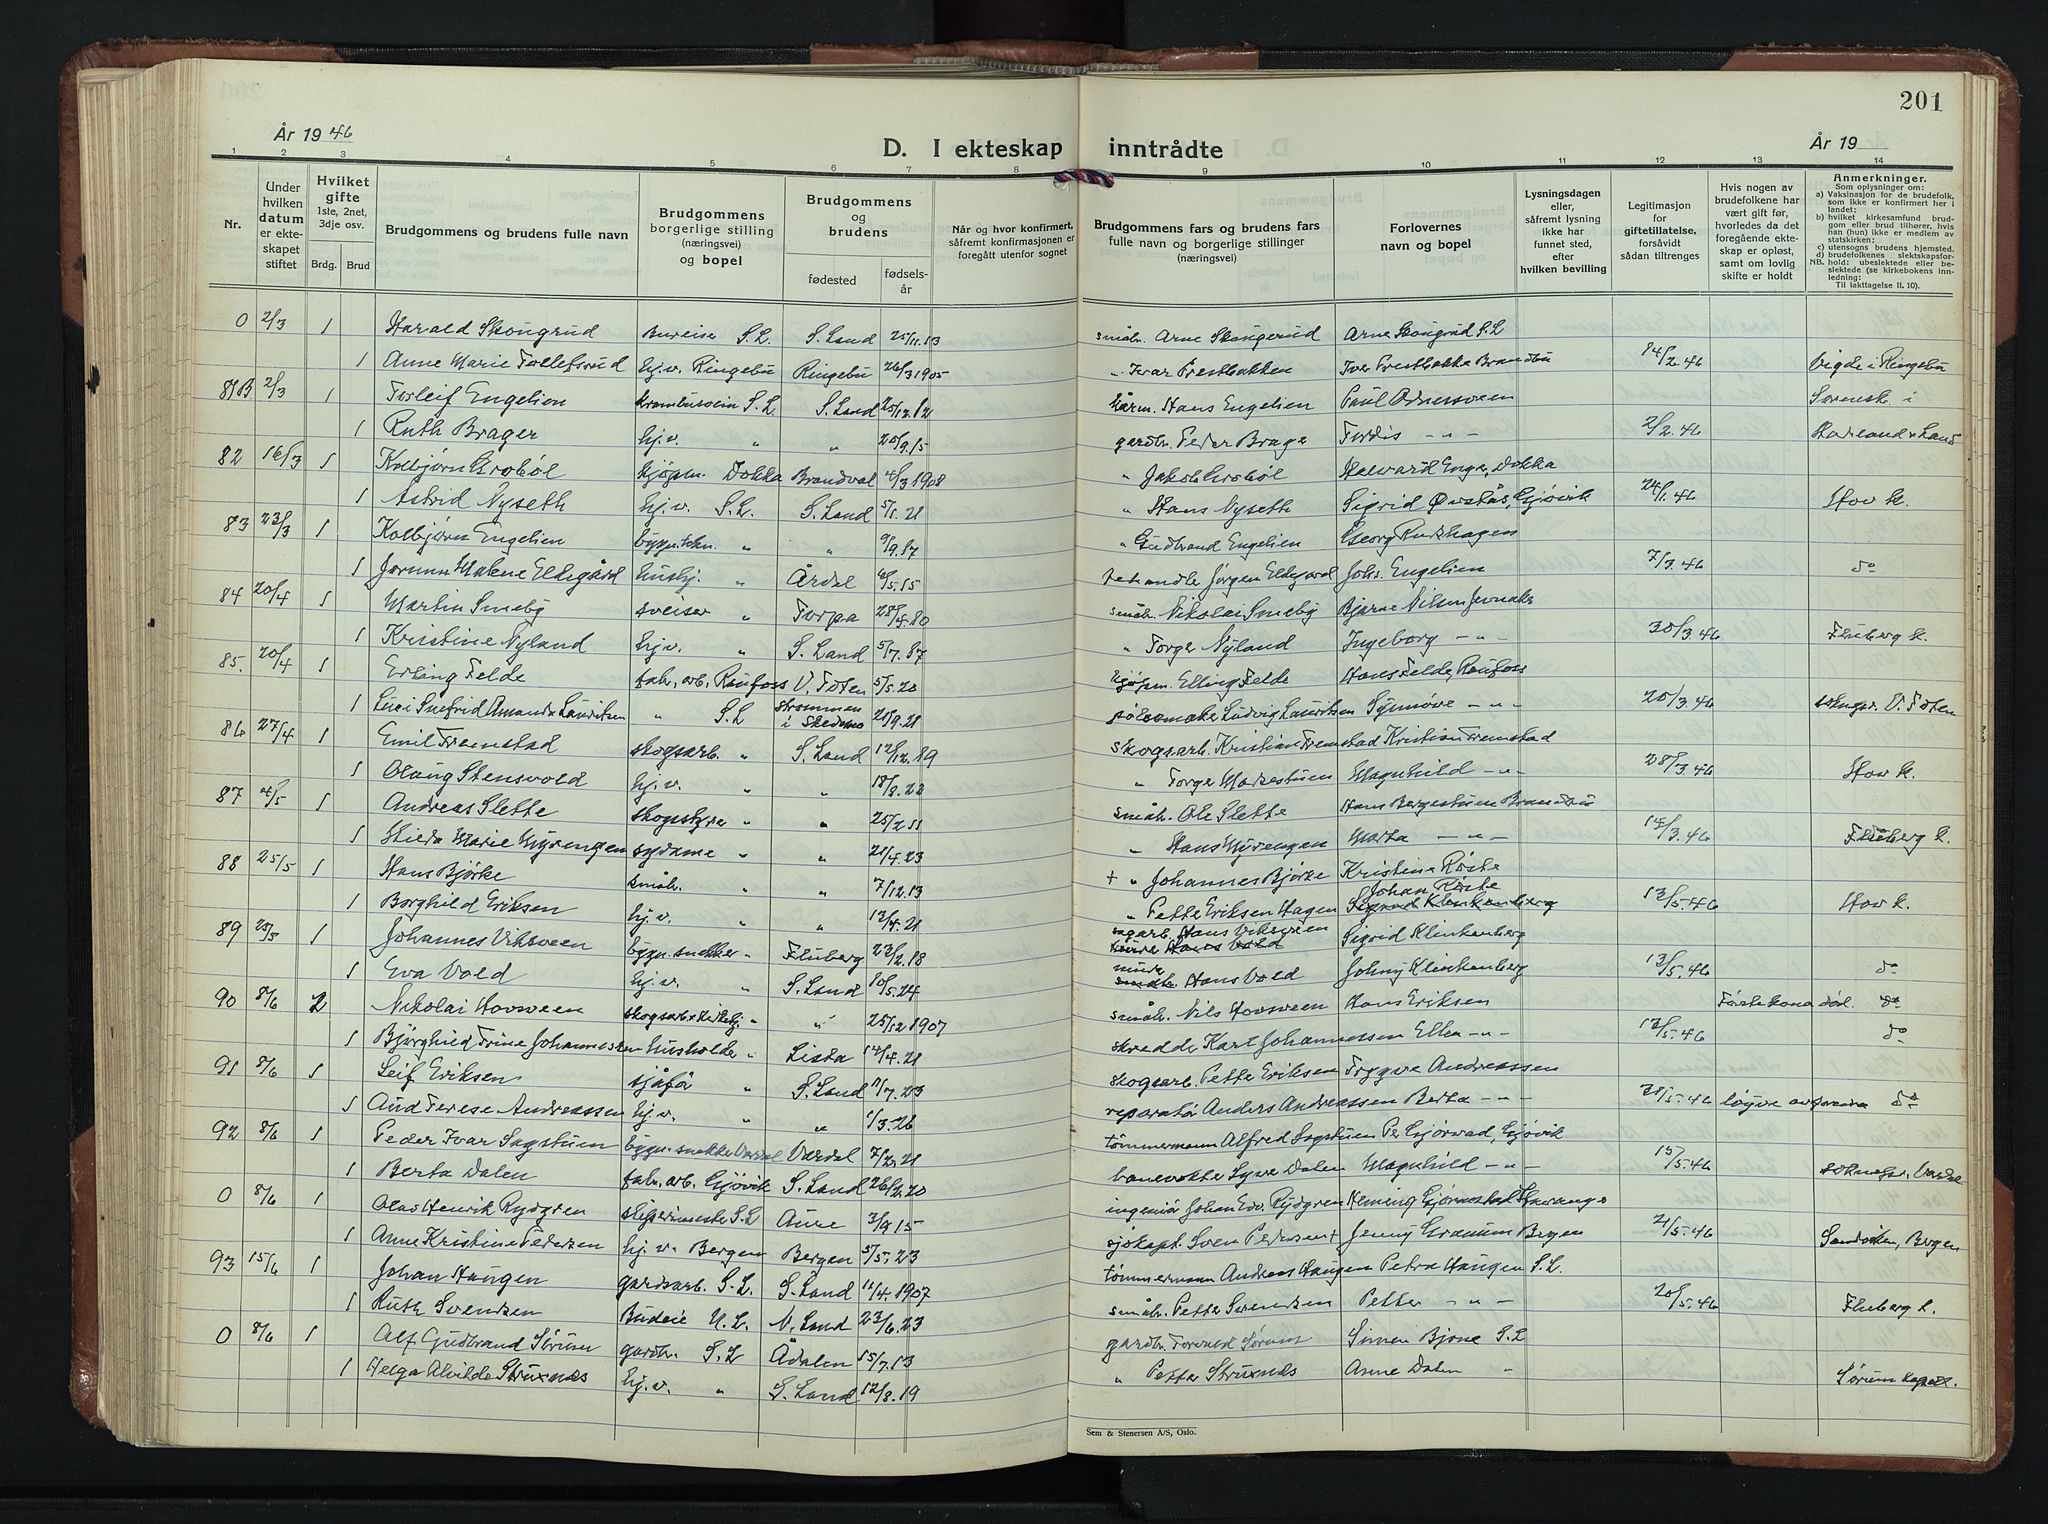 201
År 1946
D. I ekteskap inntrådte
År 19
1 2 3 4 5 6 7 8 9 10 11 12 13 14
Nr.
Under hvilken datum er ekteskapet stiftet
Hvilket gifte 1ste, 2net, 3dje osv.
Brdg. Brud
Brudgommens og brudens fulle navn
Brudgommens borgerlige stilling (næringsvei) og bopel
Brudgommens og brudens
fødested
fødselsår
Når og hvor konfirmert, såfremt konfirmasjonen er foregått utenfor sognet
Brudgommens fars og brudens fars fulle navn og borgerlige stillinger (næringsvei)
Forlovernes navn og bopel
Lysningsdagen eller, såfremt lysning ikke har funnet sted, efter hvilken bevilling
Legitimasjon for giftetillatelse, forsåvidt sådan tiltrenges
Hvis nogen av brudefolkene har vært gift før, hvorledes da det foregående ekteskap er opløst, samt om lovlig skifte er holdt
Anmerkninger.
Som oplysninger om:
a) Vaksinasjon for de brudefolk, som ikke er konfirmert her i landet;
b) hvilket kirkesamfund brudgom eller brud tilhører, hvis han (hun) ikke er medlem av statskirken;
c) utensogns brudens hjemsted.
d) brudefolkenes slektskapsforhold: ubeslektede eller beslektede (se kirkebokens innledning:
NB.
Til iakttagelse II, 10).
0 2/3 1 Harald Skougrud Bureiser S.L. S. Land 25/11.13 småbr. Arne Skougerud Arne Skougrud S.L
1 Anne Marie Tollefsrud hj.v. Ringebu Ringebu 26/3 1905 " Ivar Brandbu 14/2.46 Vigde i Ringebu
81B 2/3 1 Torleif Engelien S.L. S. Land 25/12.12 Hans Engelien Paul Odnessveen Sorensk. i
1 Ruth Brager hj.v. " " 20/9.15 gardbr. Peder Brager Tordis -"- 2/2.46 Hadeland & Land
82 16/3 1 Kolbjørn Grobøl kjøpm. Dokka Brandval 4/3 1908 " Jakob Grobøl Halvard Enge, Dokka
1 Astrid Nyseth hj.v. S.L. S. Land 5/1.21 " Hans Nyseth Sigrid Øvstås, Gjøvik 24/1.46 Hov k.
83 23/3 1 Kolbjørn Engelien bygn.tekn. " " 9/9.17 " Gudbrand Engelien Georg Rudshagen
1 Jorunn Malene Eldegård hushj. " Årdal 6/5.15 Jørgen Eldegard Johs. Engelien 7/3.46 do
84 20/4 1 Martin Smeby sveiser " Torpa 28/4.80 småbr. Nikolai Smeby Bjarne Nilsen Jevnaker
1 Kristine Nyland hj.v. " S. Land 5/7.87 " Torger Nyland Ingeborg -"- 30/3.46 Fluberg k.
85. 20/4 1 Erling Felde fabr. arb. Raufoss V. Toten 5/5.20 kjøpm. Elling Felde Hans Felde, Raufoss
1 Snefrid Amanda Lauritsen " S.L Strømmen i Skedsmo 21/9.21 pølsemaker Ludvig Lauritsen Synnøve -"- 20/3.46 V. Toten
86 27/4 1 Emil Fremstad skogsarb. " S. Land 12/12.19 skogsarb. Kristian Fremstad Kristian Fremstad
1 Olaug Stensvold hj.v. " " 18/8.22 " Torge Markestuen Magnhild -"- 28/3.46 Hov k.
87 4/5 1 Andreas Slette " " 25/2.11 småbr. Ole Slette Hans Bergestuen Brandbu
1 Hilda Marie Myrengen sydame " " 21/4.23 " Hans Myrengen Marta -"- 14/3.46 Fluberg k.
88 25/5 1 Hans Bjørke småbr. " " 7/12.13 + " Johannes Bjørke Kristine Røste
1 Borghild Eriksen hj.v. " " 13/4.21 " Petter Eriksen Hagen Johan Røste Sigrid Klinkenberg 13/5.46 Hov k.
89 25/5 1 Johannes Viksveen bygn.snekker " Fluberg 23/2.18 sagarb. Hans Viksveen Sigrid Klinkenberg
1 Eva Vold hj.v. " S. Land 10/5.24 murer Hans Vold Johny Klinkenberg 13/5.46 do
90 8/6 2 Nikolai Hovsveen skogsarb. & kirketj. " " 25/12 1907 småbr. Nils Hovsveen Hans Eriksen Første kona død. do
1 Bjørghild Trine Johannessen husholder " Lista 14/4.21 skredder Karl Johannessen Ellen -"- 13/5.46 do
91 8/6 1 Leif Eriksen sjåfør " S. Land 11/7.23 skogsarb. Petter Eriksen Trygve Andreassen
1 Aud Terese Andreassen hj.v. " " 1/3.26 reparatør Anders Andreassen Berta -"- 31/5.46 do
92 8/6 1 Peder Ivar Sagstuen bygn.snekker Vardal Vardal 7/2.21 tømmermann Alfred Sagstuen Per Gjørvad, Gjøvik
1 Berta Dalen fabr. arb. Gjøvik S. Land 26/2.20 banevokter Syver Dalen Magnhild -"- 15/5.46 Vardal
0 8/6 1 Olav Henrik Rydgren slipermester S.L Aure 3/9.15 ingeniør Johan Edv. Rydgren Heming Gjørnestad
1 Anne Kristine Pedersen hj.v. Bergen Bergen 5/5.23 sjøkapt. Sven Pedersen + Jenny Granum Bergen 21/5.46 Sandviken, Bergen
93 15/6 1 Johan Haugen gardsarb. S.L. S. Land 11/4.1907 tømmermann Andreas Haugen Petra Haugen S.L.
1 Ruth Svendsen Budeie N.L. N. Land 23/6.23 småbr. Petter Svendsen Petter -"- 20/5.46 Fluberg k.
0 8/6 1 Alf Gudbrand Sørum gardbr. S.L Ådalen 15/7.13 gardbr. Torvald Sørum Simen Bjone S.L
1 Helga Alvilde Struxnes hj.v. " S. Land 12/8.19 " Petter Struxnes Anne Dalen " Sørum kapell.
Sem & Stenersen A/S, Oslo.